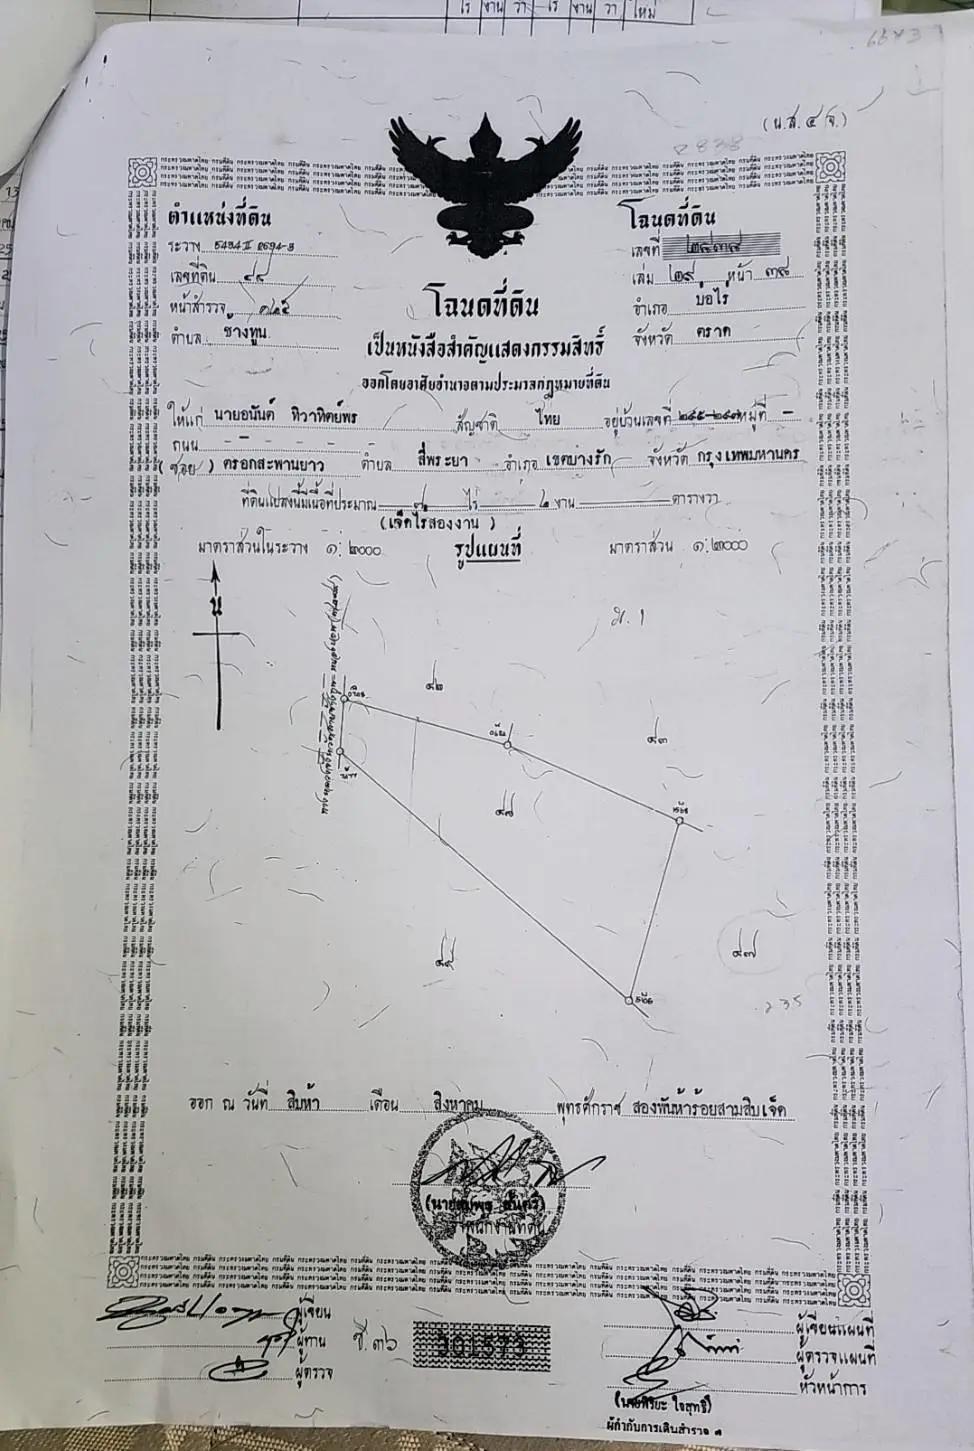 ไร่ งาน วา ไร่ งาน วา ใหม่
(น.ส. ๔ จ.)
2838
ตำแหน่งที่ดิน
ระวาง 5434 II 2694-3
เลขที่ดิน ๔๘
หน้าสำรวจ ๓๒๕
ตำบล ช้างทูน
โฉนดที่ดิน
เลขที่ ๒๘๓๘
เล่ม ๒๙ หน้า ๓๘
อำเภอ บ่อไร่
จังหวัด ตราด
โฉนดที่ดิน
เป็นหนังสือสำคัญแสดงกรรมสิทธิ์
ออกโดยอาศัยอำนาจตามประมวลกฎหมายที่ดิน
ให้แก่ นายอนันต์ ทิวาทิตย์พร สัญชาติ ไทย อยู่บ้านเลขที่ ๒๔๕-๒๔๗ หมู่ที่ –
ถนน
(ซอย) ตรอกสะพานยาว ตำบล สี่พระยา อำเภอ เขตบางรัก จังหวัด กรุงเทพมหานคร
ที่ดินแปลงนี้มีเนื้อที่ประมาณ ๗ ไร่ ๒ งาน ตารางวา
(เจ็ดไร่สองงาน)
มาตราส่วนในระวาง ๑:๒๐๐๐ รูปแผนที่ มาตราส่วน ๑:๒๐๐๐
น
ม.1
๔๒
๔๓
๔๘
๔๗
235
ออก ณ วันที่ สิบห้า เดือน สิงหาคม พุทธศักราช สองพันห้าร้อยสามสิบเจ็ด
เจ้าพนักงานที่ดิน
ผู้เขียน
ผู้ทาน
ผู้ตรวจ
ช.๓๖
301573
ผู้เขียนแผนที่
ผู้ตรวจแผนที่
หัวหน้าการ
(นายพิริยะ ใจสุทธิ์)
ผู้กำกับการเดินสำรวจ ๓